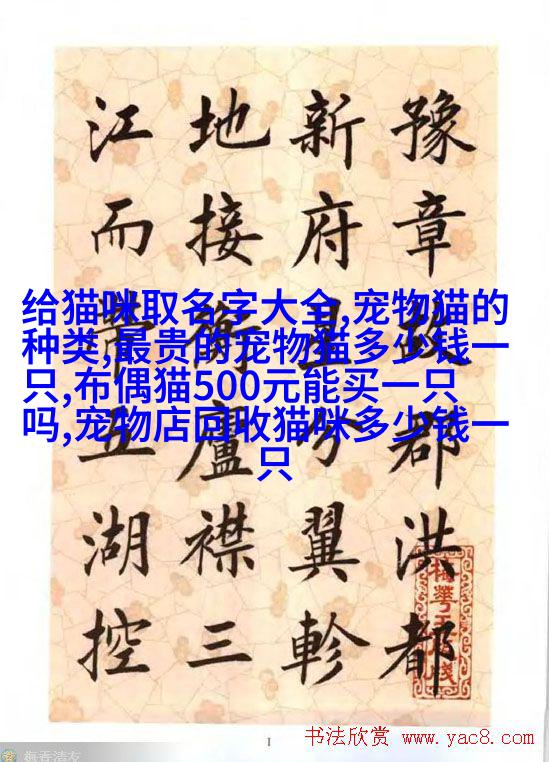 豫章故郡洪都
新府星分翼軫
地接衡廬襟三
江而帶五湖控
给猫咪取名字大全,宠物猫的
种类,最贵的宠物猫多少钱一
只,布偶猫500元能买一只
吗,宠物店回收猫咪多少钱一
只
1
书法欣赏 www.yac8.com